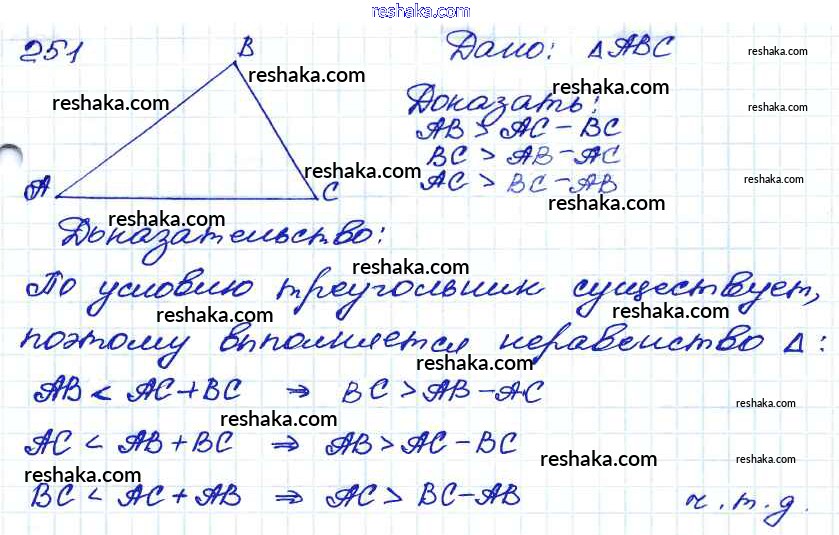 reshaka.com
251 B Дано: △ABC reshaka.com
reshaka.com
reshaka.com reshaka.com
Доказать: reshaka.com
AB > AC - BC
BC > AB - AC
reshaka.com
A C AC > BC - AB reshaka.com
reshaka.com reshaka.com
Доказательство: reshaka.com
reshaka.com
По условию треугольник существует,
reshaka.com reshaka.com
поэтому выполняется неравенство △:
reshaka.com
AB < AC + BC ⇒ BC > AB - AC
reshaka.com
reshaka.com
AC < AB + BC ⇒ AB > AC - BC
reshaka.com reshaka.com
reshaka.com
BC < AC + AB ⇒ AC > BC - AB ч.т.д.